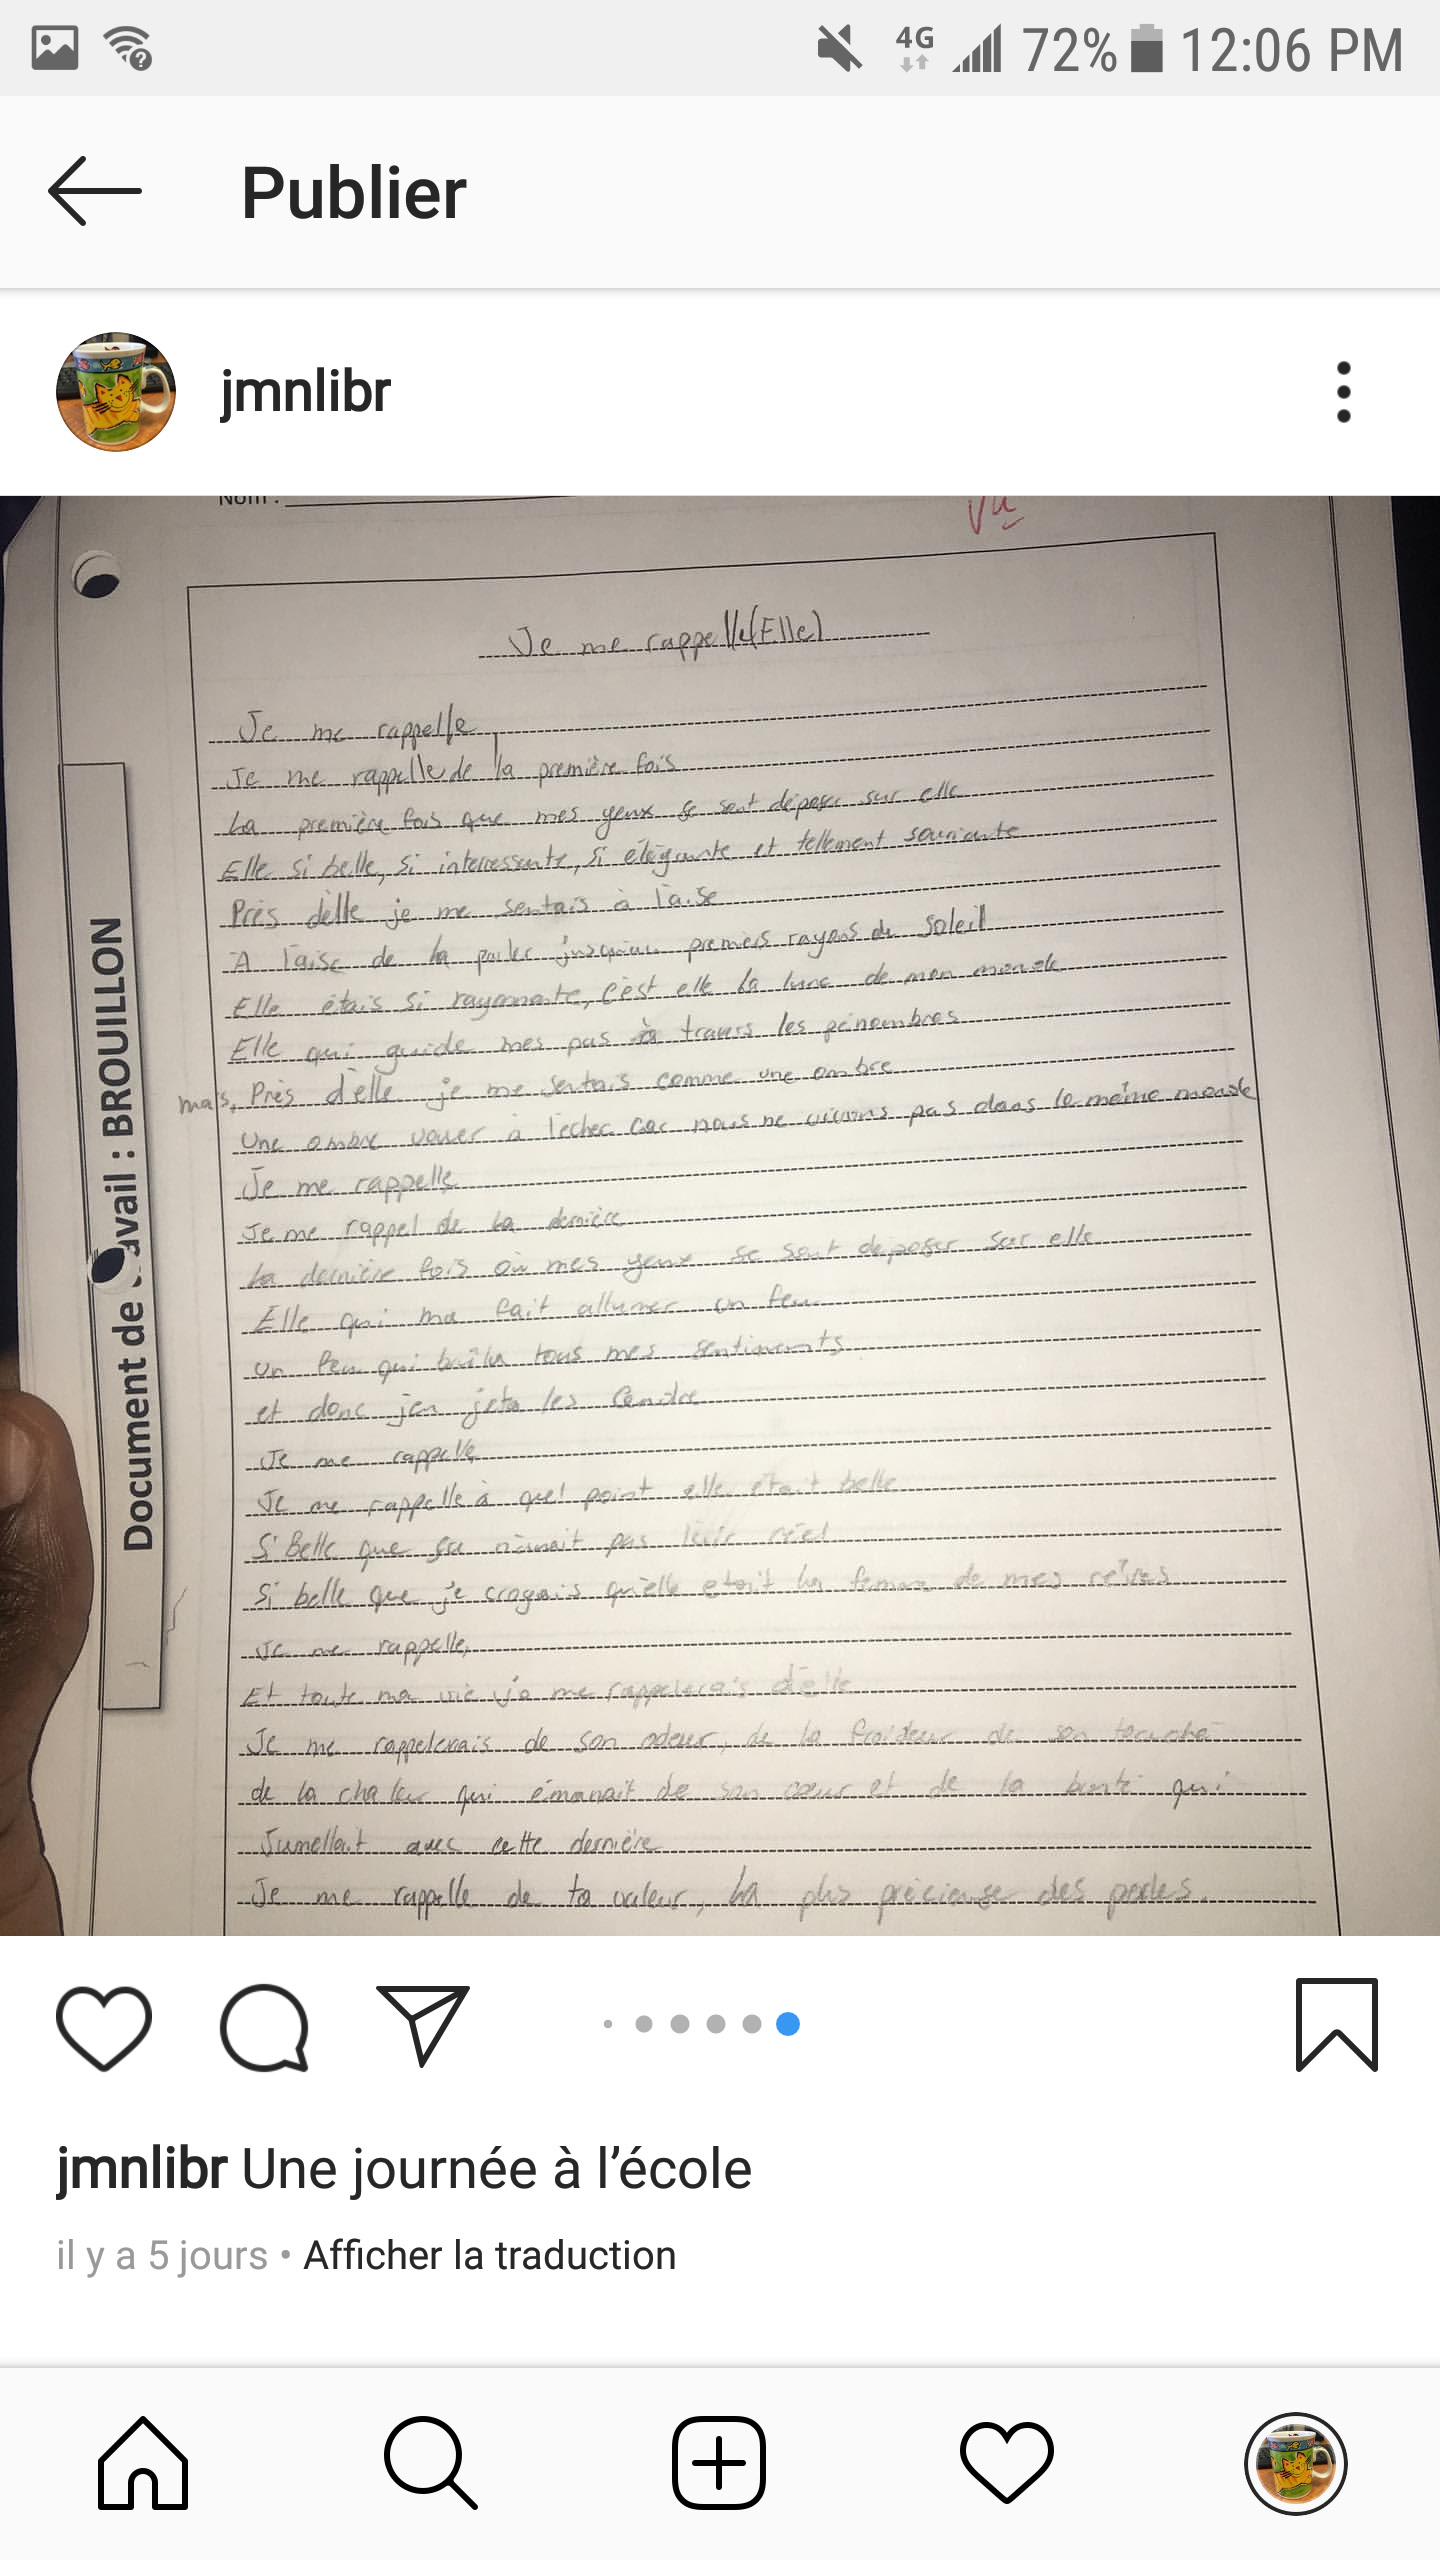 4G 72% 12:06 PM
Publier
jmnlibr
Nom :
Vu
Je me rappelle (Elle)
Je me rappelle
Je me rappelle de la première fois
La première fois que mes yeux se sont déposer sur elle
Elle si belle, si interressante, si élégante et tellement souriante
Près d'elle je me sentais à l'aise
A l'aise de la parler jusqu'au premiers rayons du soleil
Elle étais si rayonnante, c'est elle la lune de mon monde
Elle qui guide mes pas à travers les pénombres
mais, Près d'elle je me sentais comme une ombre
Une ombre vouer à l'échec car nous ne vivions pas dans le même monde
Je me rappelle
Je me rappel de la dernière
La dernière fois où mes yeux se sont déposer sur elle
Elle qui ma fait allumer un feu
un feu qui brûla tous mes sentiments
et donc j'en jeta les Cendre
Je me rappelle
Je me rappelle à quel point elle était belle
Si Belle que ça n'avait pas l'air réel
Si belle que je croyais qu'elle etait la femme de mes rêves
Je me rappelle,
Et toute ma vie je me rappelerais d'elle
Je me rappelerais de son odeur, de la froideur de son touché
de la chaleur qui émanait de son cœur et de la bonté qui
Jumellait avec cette dernière
Je me rappelle de ta valeur, La plus précieuse des perles.
Document de avail : BROUILLON
jmnlibr Une journée à l'école
il y a 5 jours • Afficher la traduction